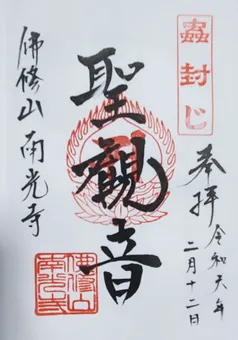 蟲封じ
奉拝 令和六年
二月十二日
聖觀音
佛修山 南光寺
佛修山
南光寺